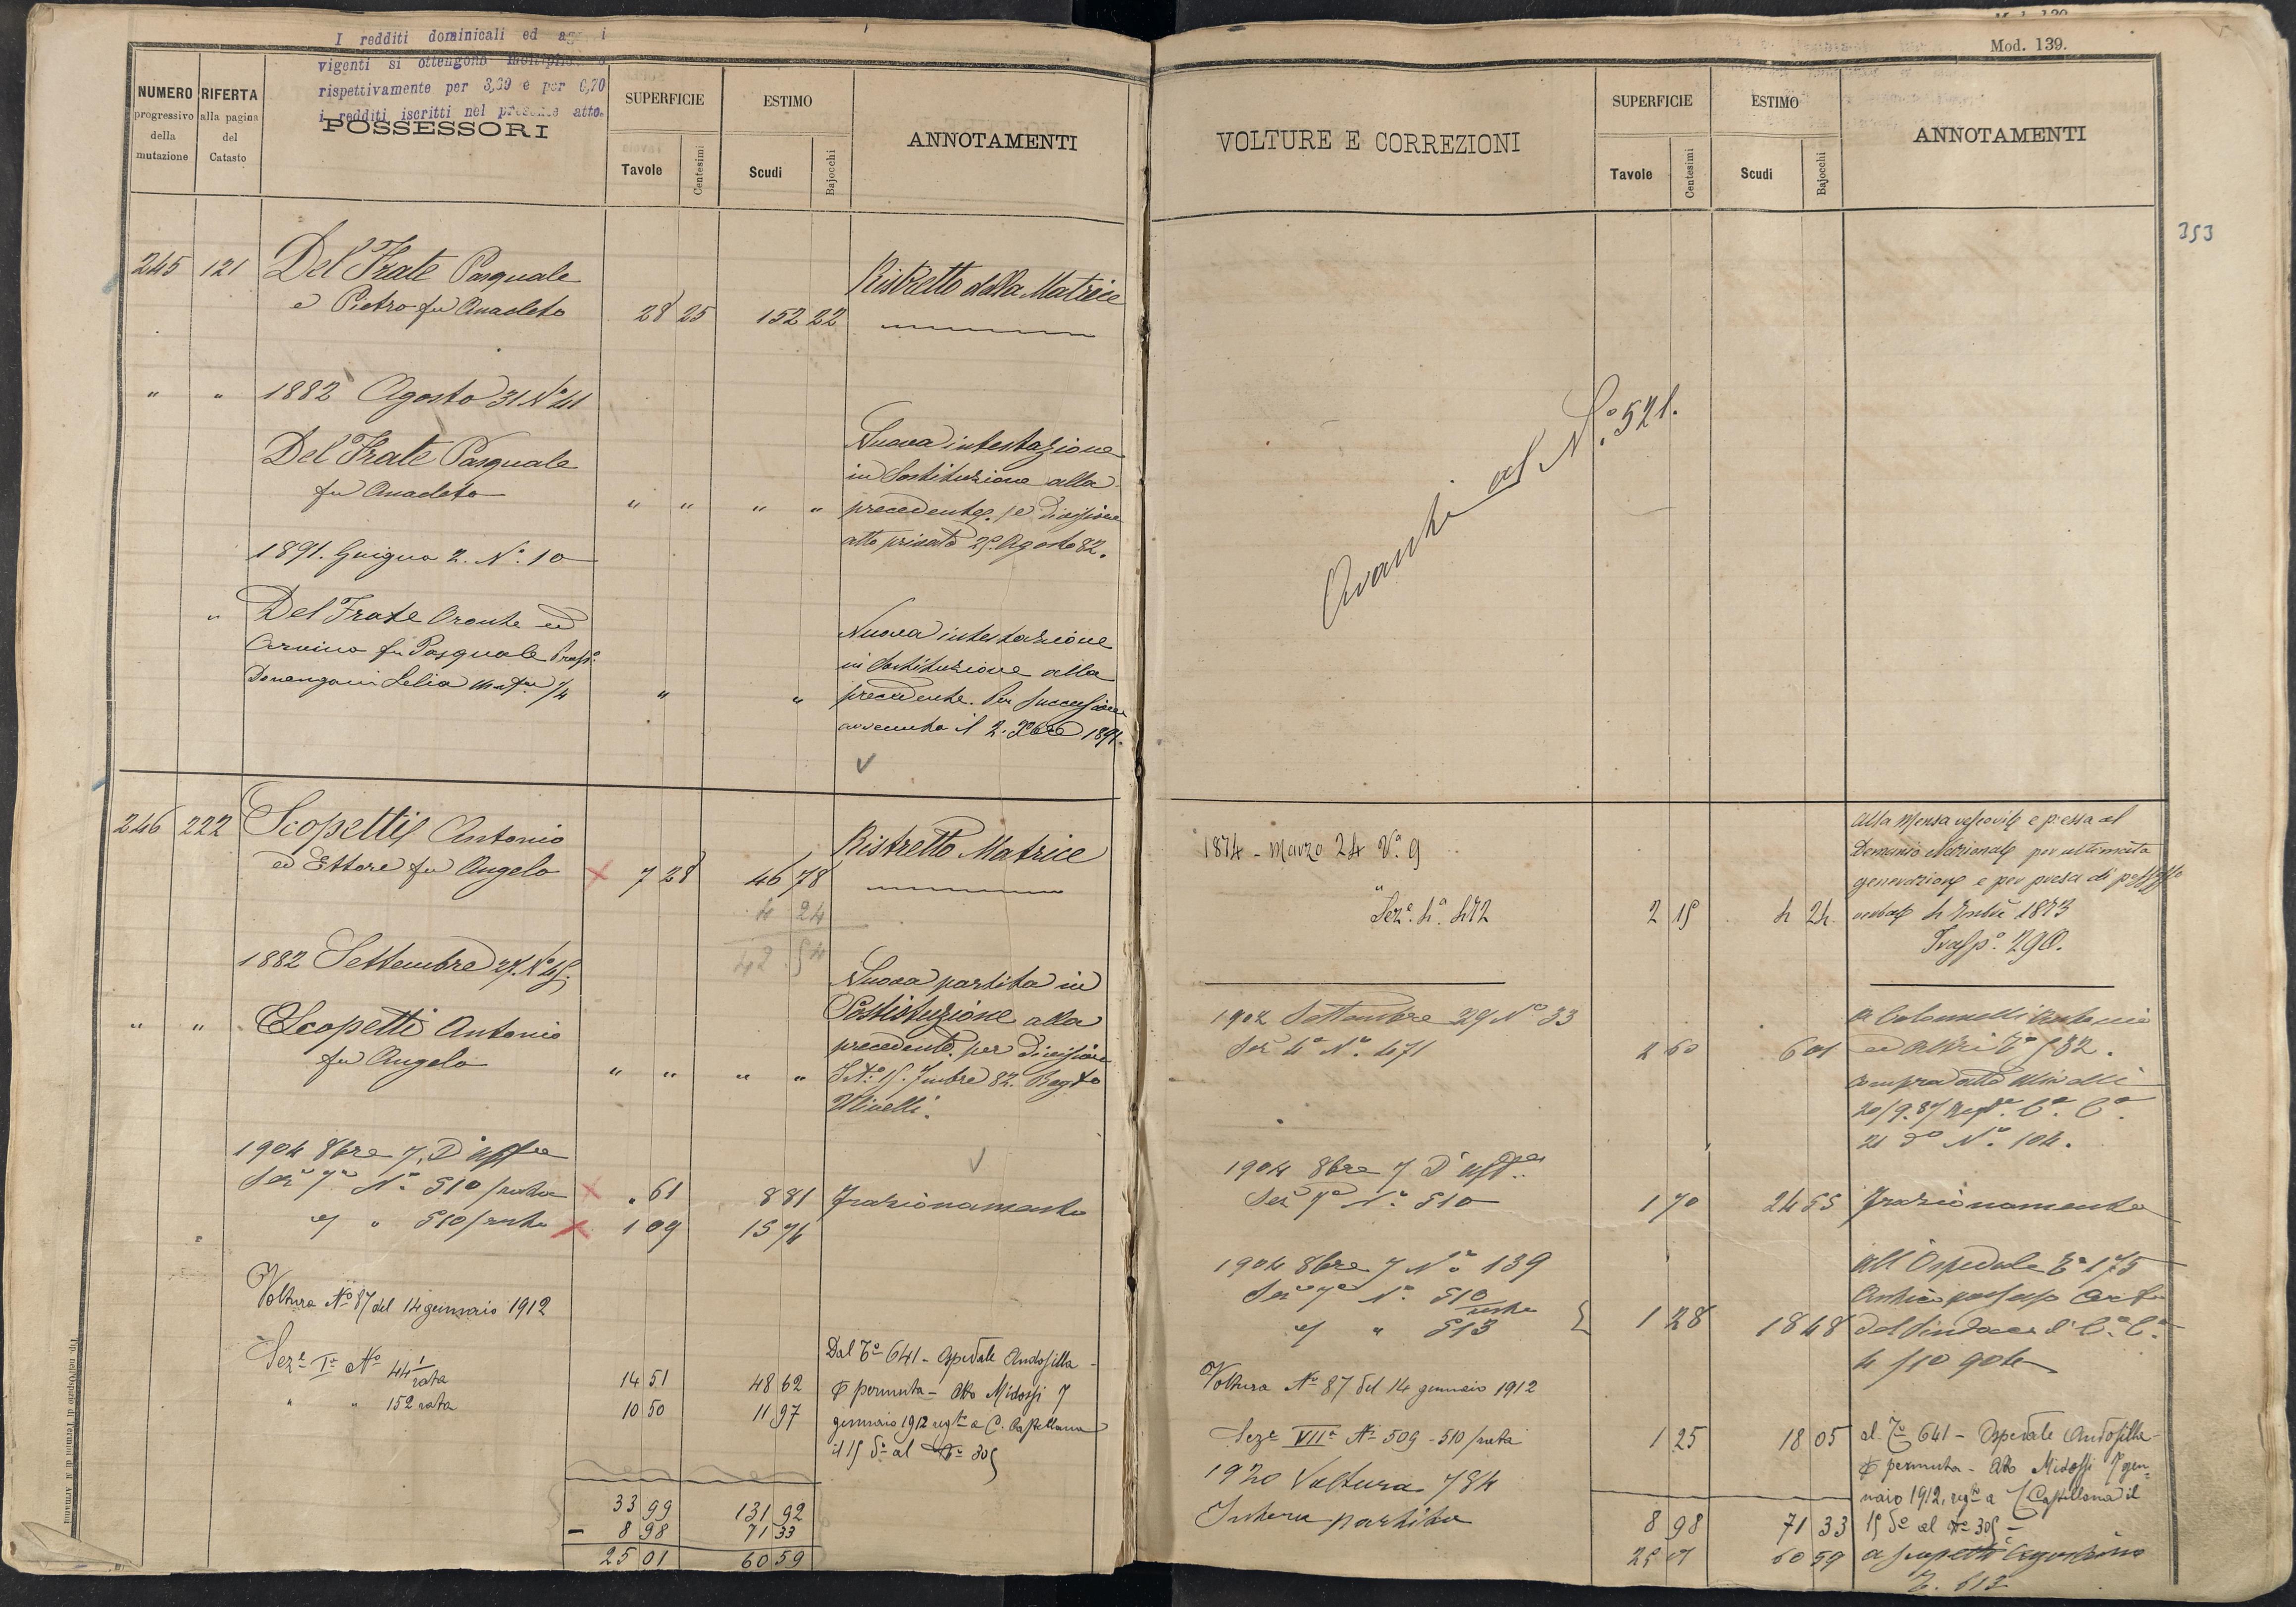 I redditi dominicali ed
vigenti si ottengono
rispettivamente per 3,30 e per 0,70
i redditi iscritti nel presente atto.
NUMERO
progressivo
della
mutazione
RIFERTA
alla pagina
del
Catasto
POSSESSORI
SUPERFICIE
Tavole
Centesimi
ESTIMO
Scudi
Bajocchi
ANNOTAMENTI
245 121 Del Frate Pasquale
e Pietro fu Anacleto 28 25 152 22
Ristretto della Matrice
" " 1882 Agosto 31 N.° 41
Del Frate Pasquale
fu Anacleto " " " "
Nuova intestazione
in Sostituzione alla
precedente p. divisione
atto privato 25. Agosto 82.
1891. Giugno 2. N.° 10
" Del Frate Oronte ed
fu Pasquale
Lelia " "
Nuova intestazione
in sostituzione alla
precedente. Per successione
avvenuta il 2. 1891.
246 222 Scopetti Antonio
ed Ettore fu Angelo 7 28 46 78
4 24
42 54
Ristretto Matrice
1882 Settembre 27. N.° 45.
" " Scopetti Antonio
fu Angelo " " " "
Nuova partita in
Sostituzione alla
precedente. per divisione
82.
Ulivelli.
1904 8bre 7. D'uff
Sez 7a N.° 510/rata . 61 8 81 Frazionamento
" 510/resto 1 09 15 74
Voltura No 87 del 14 gennaio 1912
Seze Ia No 44 1/rata 14 51 48 62
" " 152 rata 10 50 11 97
Dal To 641 - Ospedale Andosilla -
permuta - Atto Midossi 7
gennaio 1912 regto a C. Castellana
il 15 do al No 305
33 99 131 92
- 8 98 71 33
25 01 60 59
Mod. 139.
VOLTURE E CORREZIONI
SUPERFICIE
Tavole
Centesimi
ESTIMO
Scudi
Bajocchi
ANNOTAMENTI
353
Avanti al N.° 521.
1874 - Marzo 24 N.° 9
Seze. 4a. 472 2 15 4 24
Alla Mensa vescovile e p. essa al
Demanio Nazionale per ultimata
generazione e per presa di possesso
1873
Trasp.° 290.
1902 Settembre 29 N.° 33
Sez 4a N.° 471 2 60 6 01
a Colonnelli Antonio
ed Altri To 582.
compra atto Ulivelli
21 do N.° 104.
1904 8bre 7 D'uff
Sez 7a N.° 510 1 70 24 55 Frazionamento
1904 8bre 7 N.° 139
Sez 7a N.° 510
resto
" 513 1 28 18 48
all'Ospedale To 175
Antico possesso
del Sindaco di C. C.
4/10 904
Voltura No 87 del 14 gennaio 1912
Seze VIIa No 509 - 510/rata 1 25 18 05
al To 641 - Ospedale Andosilla -
permuta - Atto Midossi 7 gen=
naio 1912, regto a C. Castellana il
15 do al No 305 -
8 98 71 33
1920 Voltura 784
Intera partita 25 01 60 59
a Scopetti Agostino
T. 612